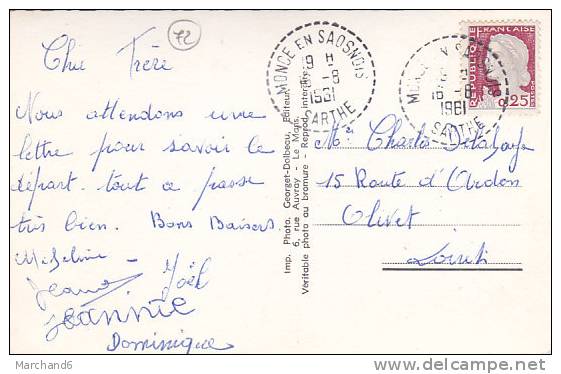 72
Cher Frère
Nous attendons une
lettre pour savoir le
départ. tout ce passe
très bien. Bons Baisers.
Madeline - Joël
Jeannie
Dominique
Imp. Photo. Georget-Dolbecu, Editeur
6, rue Auvray - Le Mans.
Véritable photo au bromure - Reprod. interdite
MONCE EN SAOSNOIS
19 H
-8
1961
SARTHE
MONCE
16-8
1961
SARTHE
REPUBLIQUE FRANCAISE
0,25
Mr Charles
15 Route d'Ardon
Olivet
Loiret
Marchand6
delcampe.net